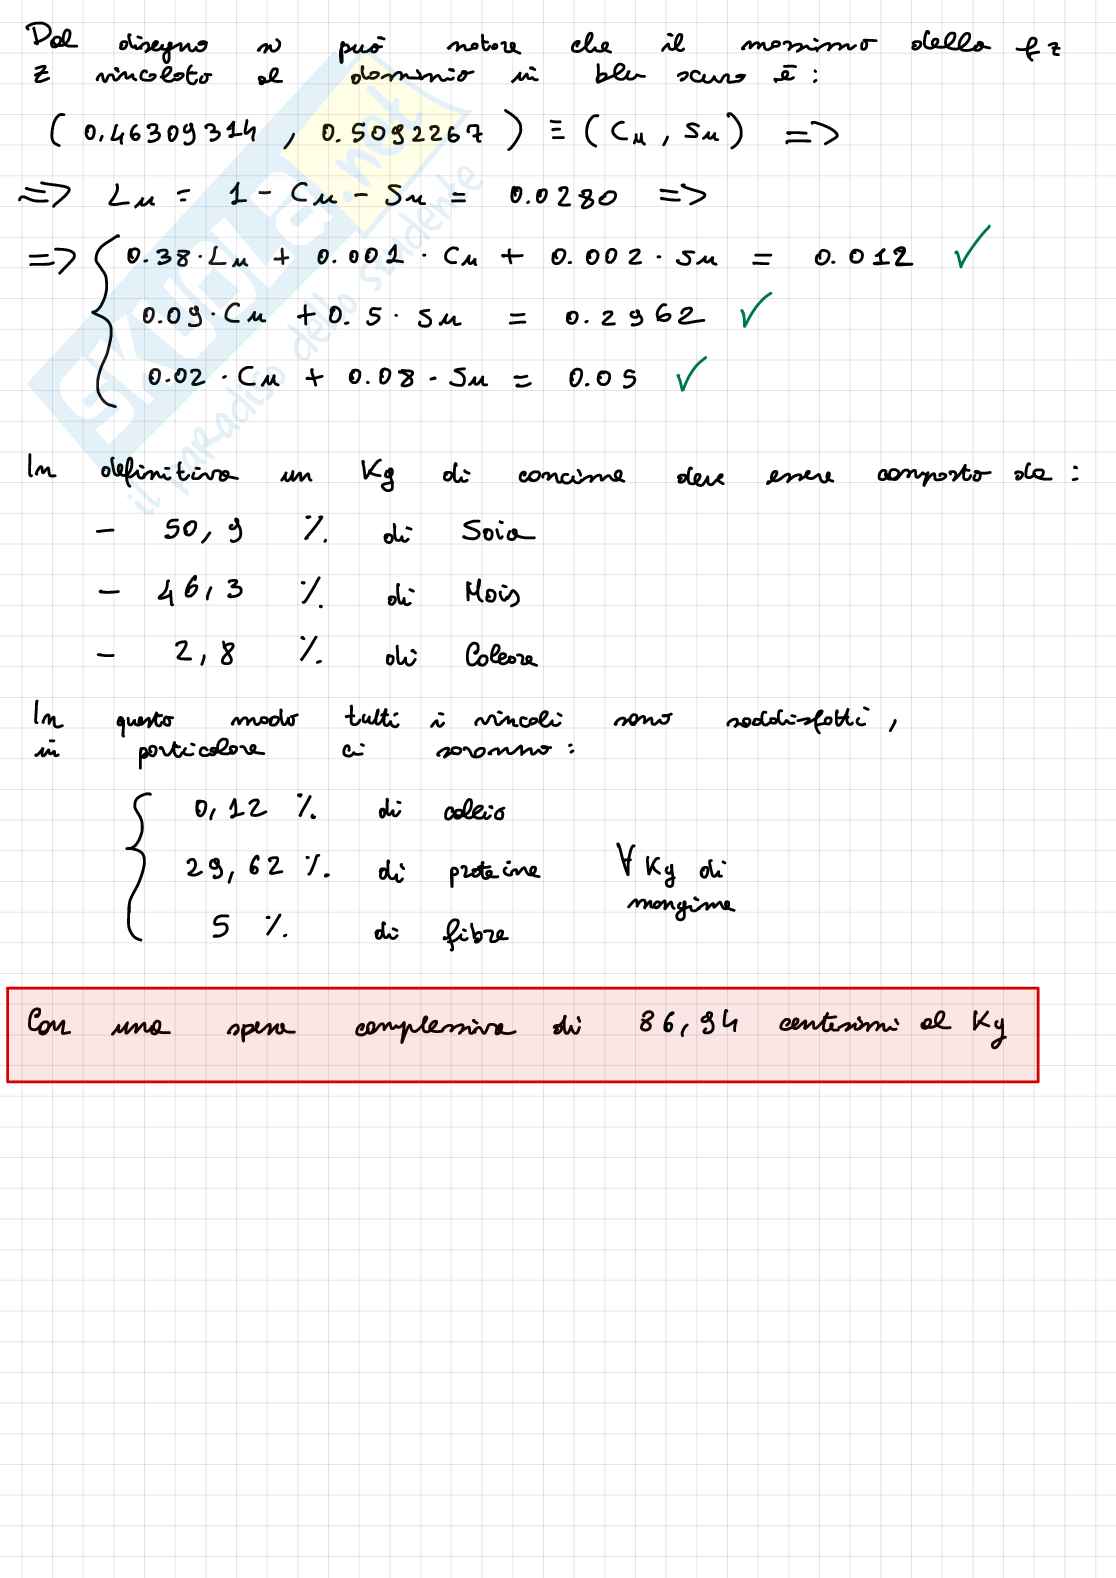 Dal disegno si può notare che il massimo della fz
z vincolato al dominio in blu scuro è:
( 0.46309314 , 0.5092267 ) ≡ ( Cu , Su ) =>
=> Lu = 1 - Cu - Su = 0.0280 =>
=> { 0.38 · Lu + 0.001 · Cu + 0.002 · Su = 0.012 ✓
0.09 · Cu + 0.5 · Su = 0.2962 ✓
0.02 · Cu + 0.08 · Su = 0.05 ✓
In definitiva un Kg di concime deve essere composto da:
- 50,9 % di Soia
- 46,3 % di Mais
- 2,8 % di Calcare
In questo modo tutti i vincoli sono soddisfatti,
in particolare ci saranno:
{ 0,12 % di calcio
29,62 % di proteine ∀ Kg di
mangime
5 % di fibre
Con una spesa complessiva di 86,94 centesimi al Kg
SKUOLA.net
il paradiso dello studente